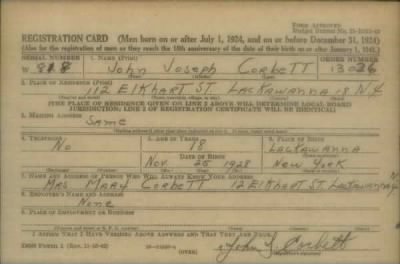 FORM APPROVED
REGISTRATION CARD (Men born on or after July 1, 1924, and on or before December 31, 1924)
(Also for the registration of men as they reach the 18th anniversary of the date of their birth on or after January 1, 1925.)
SERIAL NUMBER
1. NAME (Print)
ORDER NUMBER
W 818
John Joseph Corbett
13036
2. PLACE OF RESIDENCE (Print)
112 Elkhart St. Lackawanna 18 N.Y.
(THE PLACE OF RESIDENCE GIVEN ON LINE 2 ABOVE WILL DETERMINE LOCAL BOARD
JURISDICTION; LINE 2 OF REGISTRATION CERTIFICATE WILL BE IDENTICAL)
3. MAILING ADDRESS
Same
4. TELEPHONE
5. AGE IN YEARS
6. PLACE OF BIRTH
No
18
Lackawanna
DATE OF BIRTH
Nov. 25 1928
New York
7. NAME AND ADDRESS OF PERSON WHO WILL ALWAYS KNOW YOUR ADDRESS
Mrs. Mary Corbett 112 Elkhart St. Lackawanna N.Y.
8. EMPLOYER'S NAME AND ADDRESS
None
9. PLACE OF EMPLOYMENT OR BUSINESS
I AFFIRM THAT I HAVE VERIFIED ABOVE ANSWERS AND THAT THEY ARE TRUE.
DSS Form 1
(OVER)
John J. Corbett